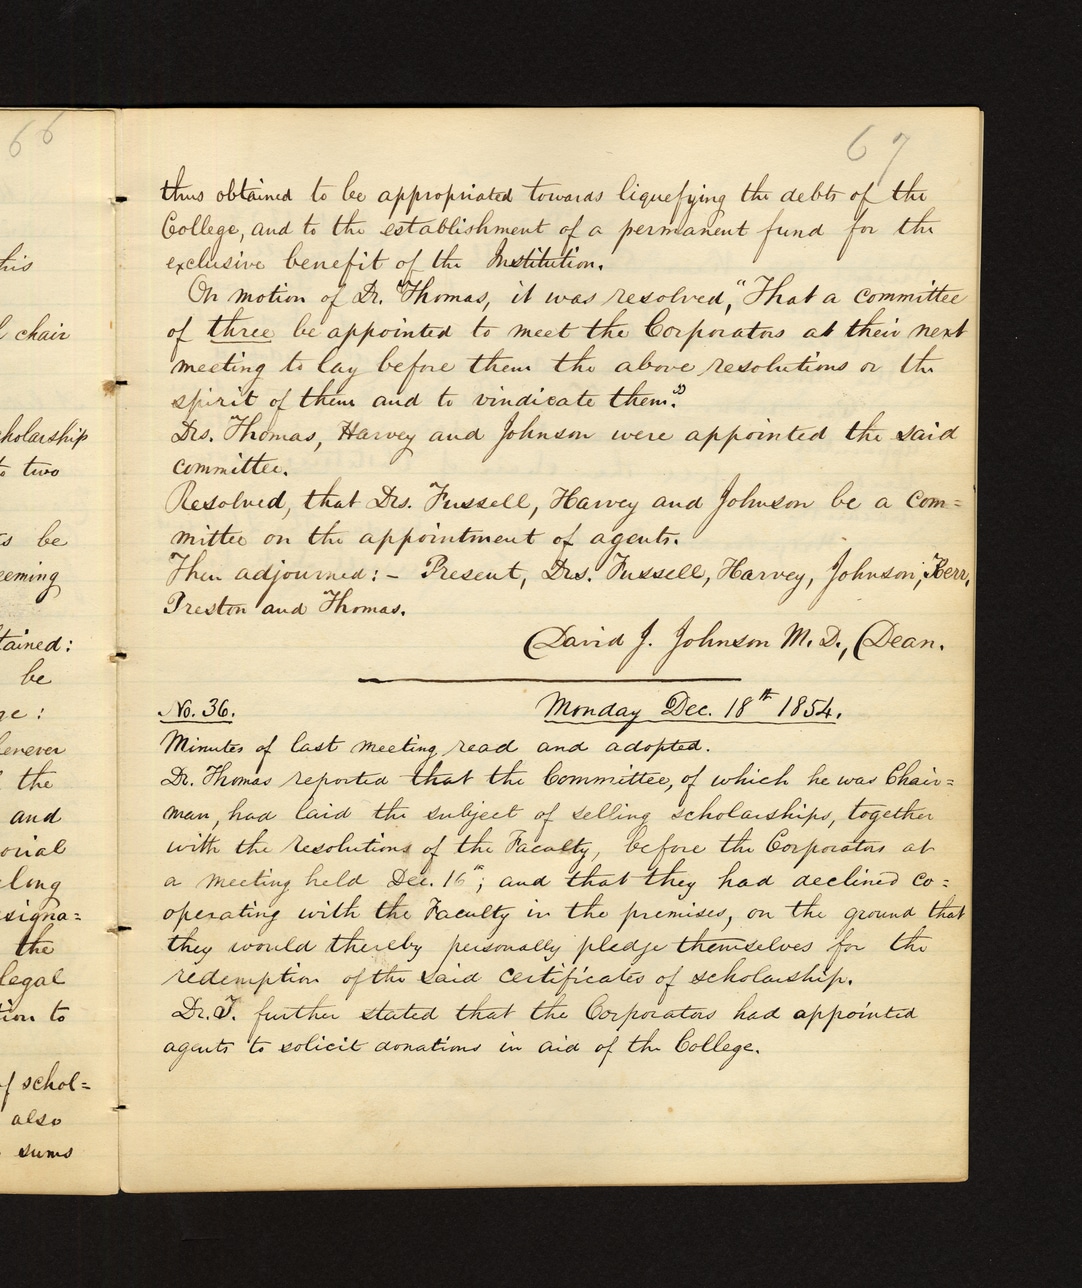 66
his
chair
cholarship
to two
ts be
eeming
tained:
be
ge:
henever
the
and
orial
eling
signa=
the
legal
tion to
of schol=
also
sums
67
thus obtained to be appropriated towards liquefying the debts of the
College, and to the establishment of a permanent fund for the
exclusive benefit of the Institution.
On motion of Dr. Thomas, it was resolved, "That a committee
of three be appointed to meet the Corporators at their next
meeting to lay before them the above resolutions or the
spirit of them and to vindicate them."
Drs. Thomas, Harvey and Johnson were appointed the said
committee.
Resolved, that Drs. Fussell, Harvey and Johnson be a com=
mittee on the appointment of agents.
Then adjourned:- Present, Drs. Fussell, Harvey, Johnson, Kerr,
Preston and Thomas.
David J. Johnson M.D., Dean.
No. 36. Monday Dec. 18th 1854.
Minutes of last meeting read and adopted.
Dr. Thomas reported that the Committee, of which he was Chair=
man, had laid the subject of selling scholarships, together
with the resolutions of the Faculty, before the Corporators at
a meeting held Dec. 16th; and that they had declined co=
operating with the Faculty in the premises, on the ground that
they would thereby personally pledge themselves for the
redemption of the said certificates of scholarship.
Dr. T. further stated that the Corporators had appointed
agents to solicit donations in aid of the College.